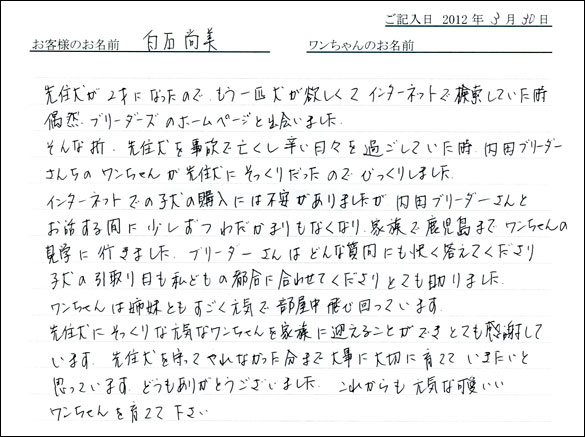 ご記入日 2012年 3月 30日
お客様のお名前 白石 尚美 ワンちゃんのお名前
先住犬が 2才になったので、もう一匹犬が欲しくて インターネットで検索していた時
偶然、ブリーダーズのホームページと出会いました。
そんな折、先住犬を事故で亡くし辛い日々を過ごしていた時、内田ブリーダー
さんちの ワンちゃんが先住犬に そっくりだったので びっくりしました。
インターネットでの子犬の購入には不安がありましたが 内田ブリーダーさんと
お話する間に 少しずつ わだかまりもなくなり、家族で鹿児島まで ワンちゃんの
見学に 行きました。 ブリーダーさんは どんな質問にも快く答えてくださり
子犬の引取り日も私どもの都合に合わせてくださりとても助りました。
ワンちゃんは姉妹ともすごく元気で部屋中飛び回っています。
先住犬にそっくりな元気なワンちゃんを家族に迎えることができとても感謝して
います。先住犬を守ってやれなかった分まで大事に大切に育てて いきたいと
思っています。どうもありがとうございました。 これからも 元気な可愛いい
ワンちゃんを育てて下さい